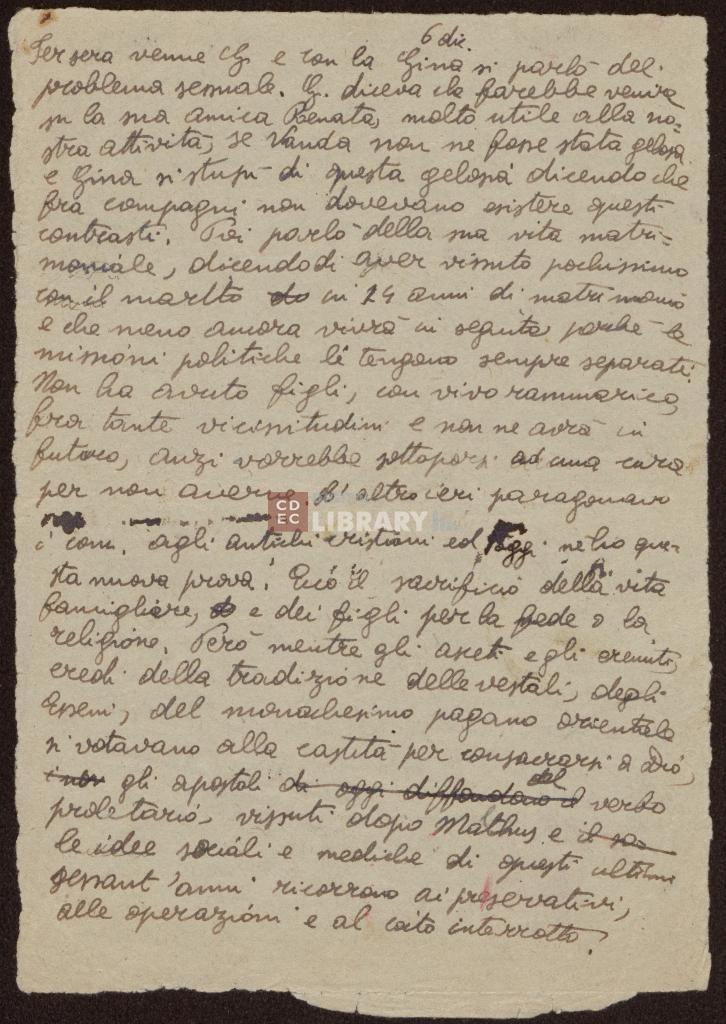 6 dic.
Ier sera venne G. e con la Gina si parlò del
problema sessuale. G. diceva che farebbe venire
su la sua amica Renata, molto utile alla no=
stra attività, se Vanda non ne fosse stata gelosa
e Gina si stupì di questa gelosia dicendo che
fra compagni non dovevano esistere questi
contrasti. Poi parlò della sua vita matri=
moniale, dicendo di aver vissuto pochissimo
con il marito in 14 anni di matrimonio
e che meno ancora vivrà in seguito perchè le
missioni politiche li tengono sempre separati.
Non ha avuto figli, con vivo rammarico,
fra tante vicissitudini e non ne avrà in
futuro, anzi vorrebbe sottoporsi ad una cura
per non averne. L'altro ieri paragonavo
CDEC LIBRARY
i com. agli antichi cristiani ed oggi ne ho que-
sta nuova prova! Ecco il sacrificio della vita
famigliare, e dei figli per la fede o la
religione. Però mentre gli asceti e gli eremiti,
eredi della tradizione delle vestali, degli
Esseni, del monachesimo pagano orientale
si votavano alla castità per consacrarsi a Dio,
gli apostoli di oggi diffondono il del verbo
proletario, vissuti dopo Malthus e
le idee sociali e mediche di questi ultimi
sessant'anni ricorrono ai preservativi,
alle operazioni e al coito interrotto.